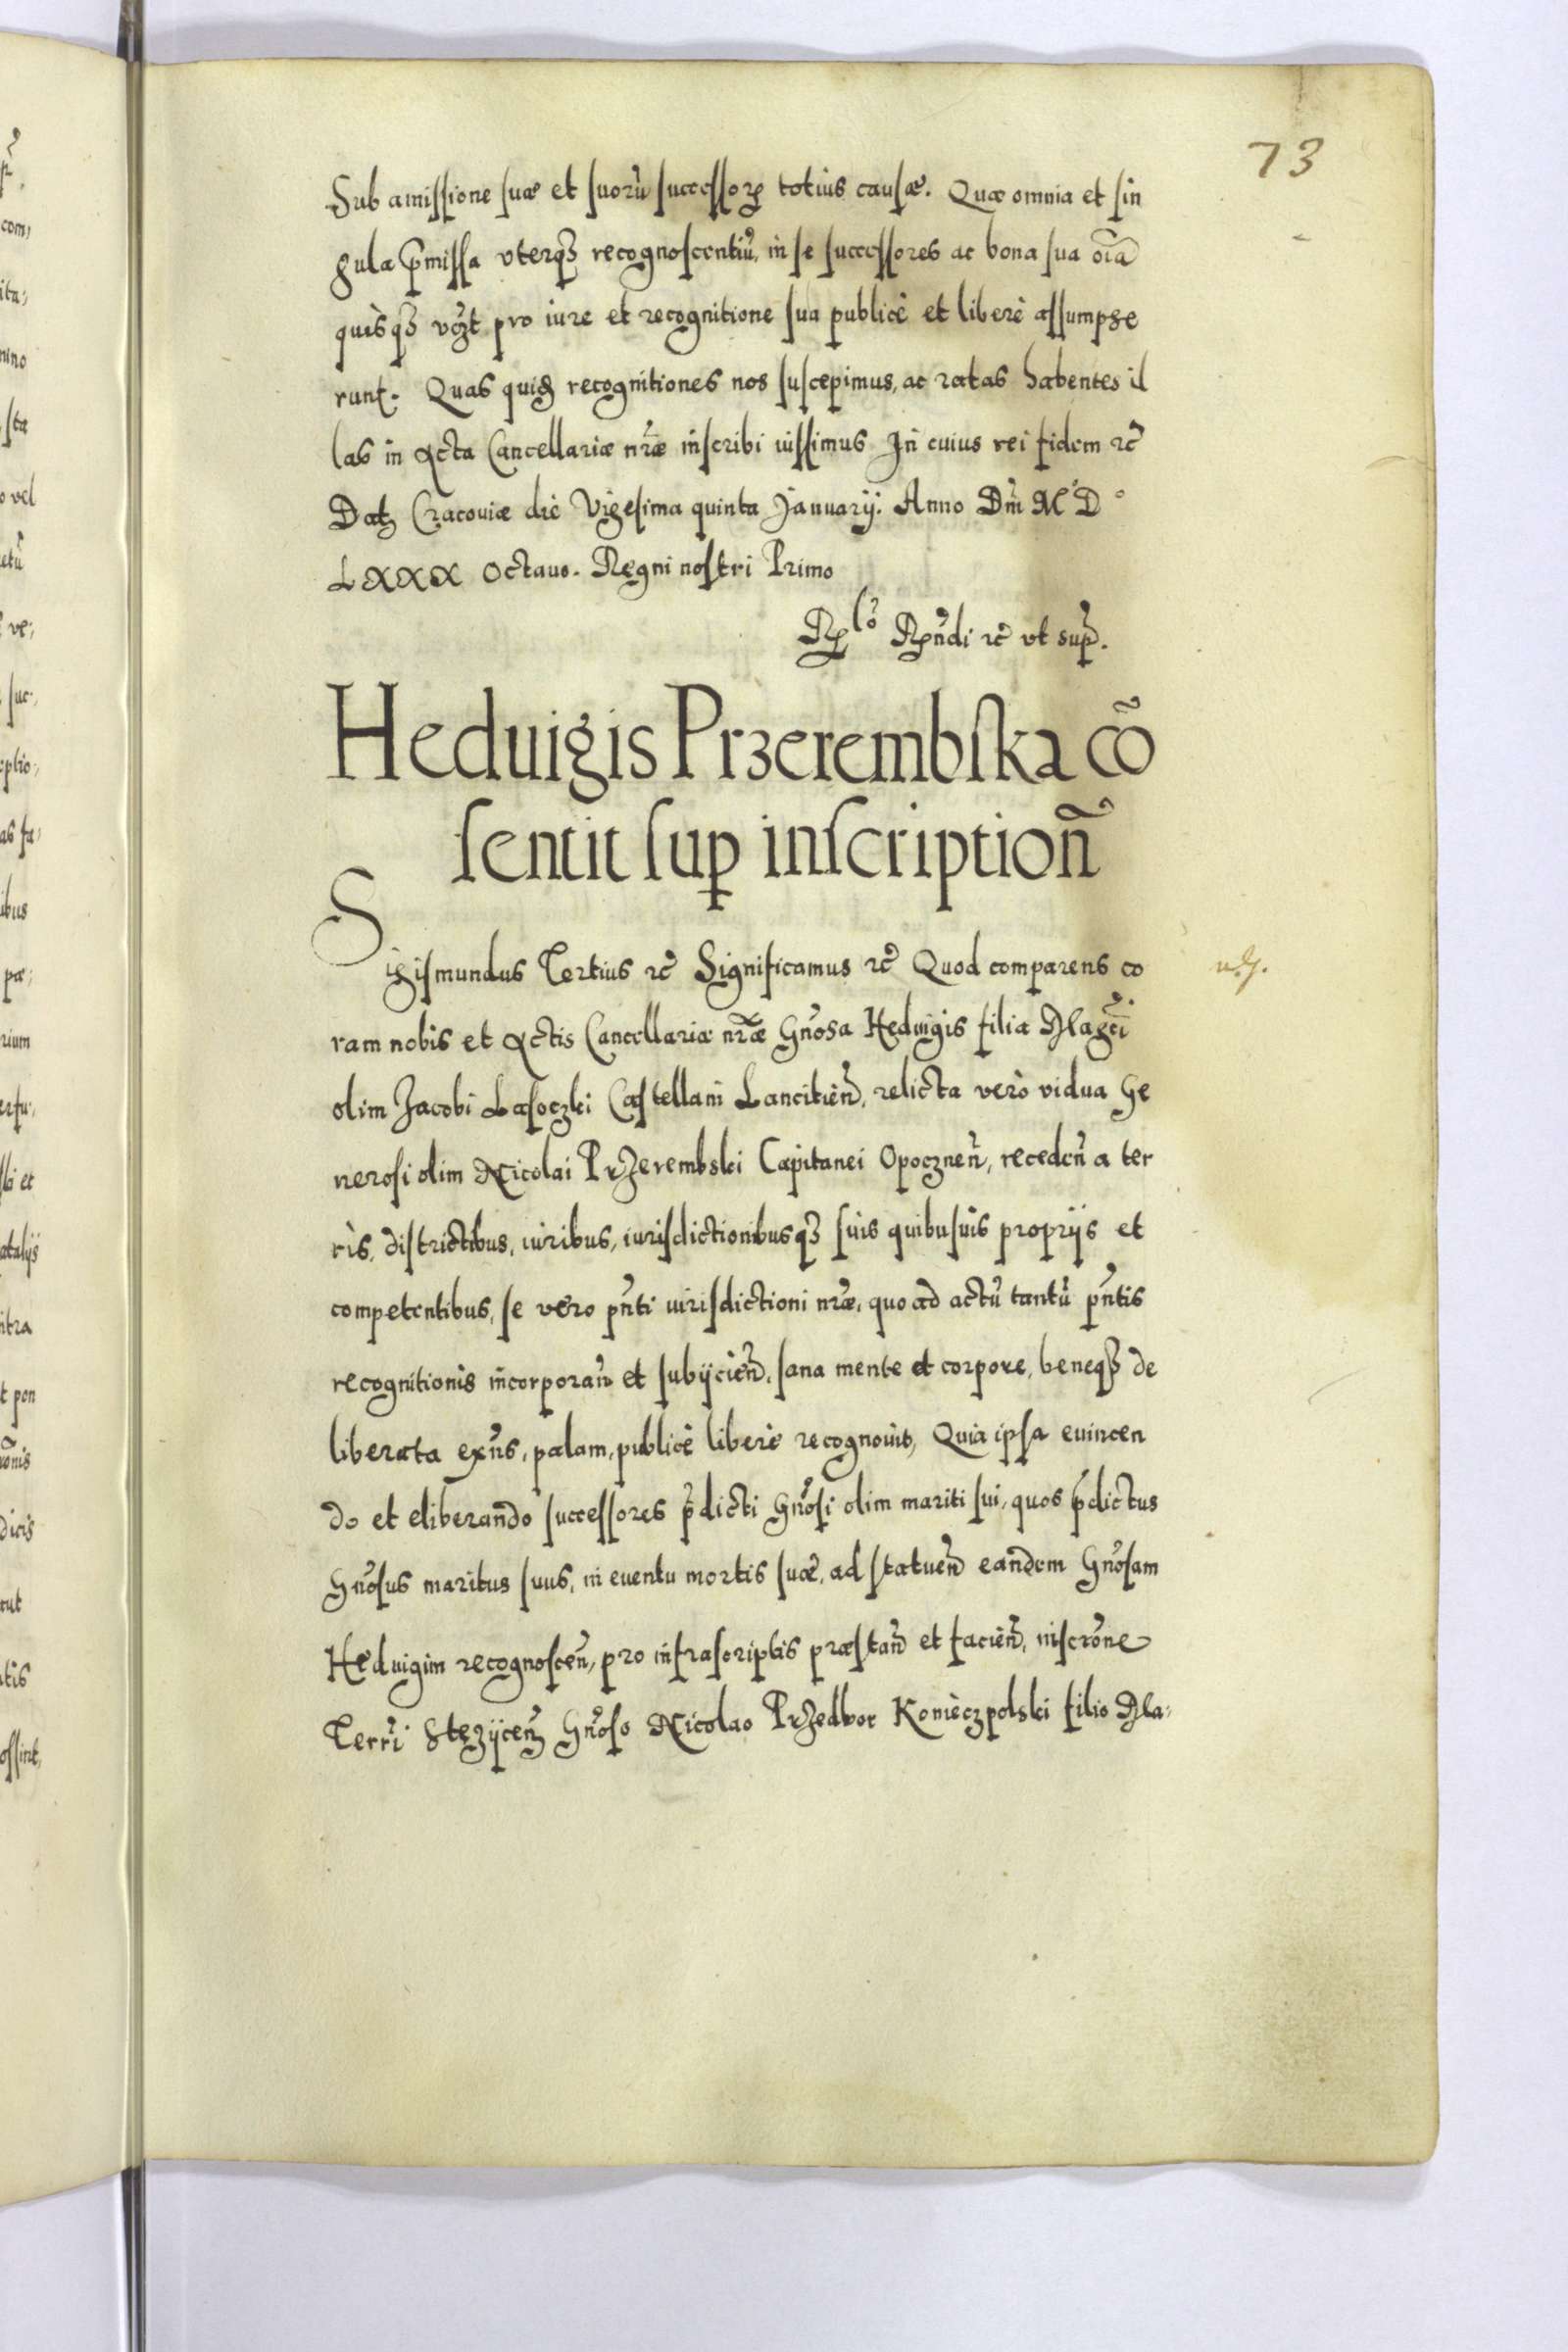 73
Sub amissione suæ et suorũ successoꝝ totius causæ. Quæ omnia et sin
gula p̃missa uterqꝫ recognoscentiũ, in se successores ac bona sua oĩa
quisqꝫ vcꝫt pro iure et recognitione sua publicè et liberè assumpse
runt. Quas quiđ recognitiones nos suscepimus, ac ratas habentes il
las in Acta Cancellariæ nr̃æ inscribi iussimus In cuius rei fidem ꝛc̃
Datꝫ Cracoviæ die Vigesima quinta Januarij. Anno Dñi M° D°
LXXX Octavo. Regni nostri Primo
Rp̃ndi ꝛc̃ ut sup̃.
Heduigis Przerembska cõ
sentit suꝑ inscription̄
Sigismundus Tertius ꝛc̃ Significamus ꝛc̃ Quod comparens co
ram nobis et Actis Cancellariæ nr̃æ Gñosa Heduigis filia Magc̃i
olim Jacobi Lasoczki Castellani Lancitień, relicta verò vidua Ge
nerosi olim Nicolai Przerembski Capitanei Opoczneñ, recedeñ a ter
ris, districtibus, iuribus, iurisdictionibusqꝫ suis quibusuis proprijs et
competentibus, se vero pñti iurisdictioni nr̃æ, quo ad actũ tantũ pñtis
recognitionis incorporañ et subijcieñ, sana mente et corpore, beneqꝫ de
liberata exñs, palam, publicè liberè recognouit, Quia ipsa euincen
do et eliberando successores p̃dicti Gñosi olim mariti sui, quos p̃dictus
Gñosus maritus suus, in euentu mortis suæ, ad statueñ eandem Gñosam
Heduigim recognosceñ, pro infrascriptis præstañ et facieñ, inscrõne
Terrĩ Stezyceñ Gñoso Nicolao Przedbor Koniecpolski filio Ma-